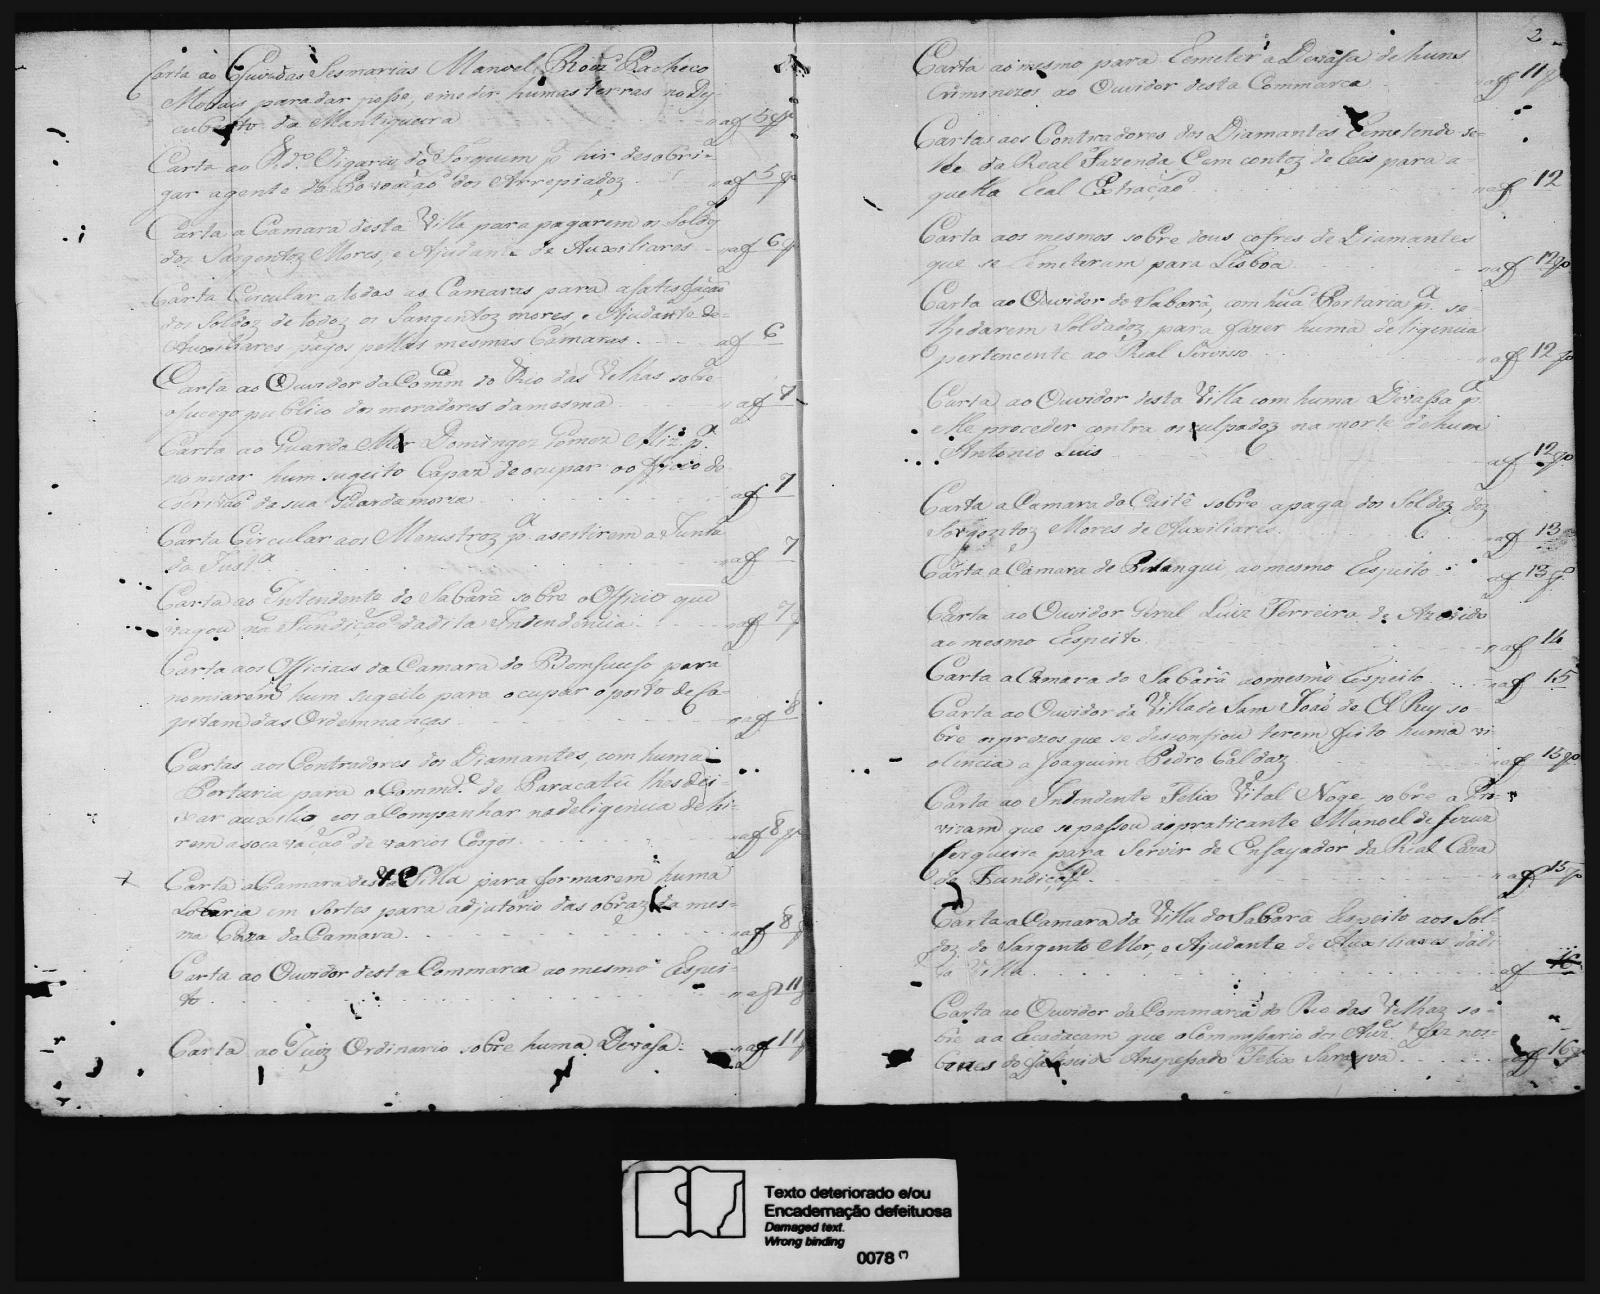 Carta ao Guarda das Sesmarias Manoel Roiz Pacheco
Morais para dar posse, e medir humas terras no Des-
cuberto da Mantiqueira na f 5 v
Carta ao R.do Vigario do Sorquim p.a hir desobri-
gar agente da Povoação dos Arrepiadoz na f 5 v
Carta a Camara desta Villa para pagarem os Soldos
dos Sargentoz Mores, e Ajudante de Auxiliares na f 6 v
Carta Circular a todas as Camaras para a satisfação
dos Soldoz de todoz os Sangentoz mores, e Ajudante de-
Auxiliares pagos pellas mesmas Camaras. a f 6
Carta ao Ouvidor da Com.ca do Rio das Velhas sobre
o sucego publico dos moradores da mesma na f 7
Carta ao Guarda Mor Domingoz Gomez p.a
nomear hum sugeito Capaz de ocupar o officio de
escrivaõ da sua Guardamoria a f 7
Carta Circular aos Menistroz p.a asestirem a Junta
da Just.a na f 7
Carta ao Intendente do Sabará sobre o Officio que
vagou na Fundição da dita Intendencia na f 7 v
Carta aos Officiais da Camara do Bomsucesso para
nomiarem hum sugeito para ocupar o posto de Ca-
pitam das Ordennanças na f 8
Cartas aos Contradores dos Diamantes, com huma
Portaria para o Comm.de de Paracatú lhes dei-
xar auxilio, e os aCompanhar na deligencia de hi-
rem a socavação de varios Corgos. na f 8 v
Carta a Camara desta Villa para formarem huma
Lotaria em Sortes para adjutorio das obraz da mes-
ma Caza da Camara. na f 8 v
Carta ao Ouvidor desta Commarca ao mesmo Respei-
to na f 11
Carta ao Juiz Ordinario sobre huma Devasa: na f 11 v
2
Carta ao mesmo para Remeter a Devassa de huns
Criminozos ao Ouvidor desta Commarca na f 11 v
Cartas aos Contradores dos Diamantes Remetendo se-
lhe da Real Fazenda Cem contoz de Reis para a-
quella Real Extração na f 12
Carta aos mesmos sobre dous cofres de Diamantes
que se Remeteram para Lisboa na f 12 v
Carta ao Ouvidor do Sabará, com huã Portaria p.a se
lhe darem Soldadoz, para fazer huma deligencia
pertencente ao Real Servisso na f 12 v
Carta ao Ouvidor desta Villa com huma Devassa p.a
elle proceder contra os culpadoz na morte de hum
Antonio Luis a f 12 v
Carta a Camara do Caité sobre a paga dos Soldoz doz
Sargentoz Mores de Auxiliares. na f 13
Carta a Camara de Pitangui, ao mesmo Respeito a f 13 v
Carta ao Ouvidor Geral Luiz Ferreira de Azeredo
ao mesmo Respeito na f 14
Carta a Camara do Sabará ao mesmo Respeito na f 15
Carta ao Ouvidor da Villa de Sam João de El Rey so-
bre os prezos que se desconfiou terem feito huma vi
olencia a Joaquim Pedro Caldaz na f 15 v
Carta ao Intendente Felix Vital Noge sobre a Pro-
vizam que se passou ao praticante Manoel de
Cerqueira para Servir de Ensayador da Real Caza
da Fundição. na f 15 v
Carta a Camara da Villa do Sabara Respeito aos Sol
doz do Sargento Mor, e Ajudante de Auxiliares da di
ta Villa a f 16
Carta ao Ouvidor da Commarca do Rio das Velhaz so-
bre a aRecadacam que o Commissario dos Auz.es faz noz
do falescido Anspessado Felix Sarayva. na f 16 v
Texto deteriorado e/ou
Encadernação defeituosa
Damaged text.
Wrong binding
0078 (*)